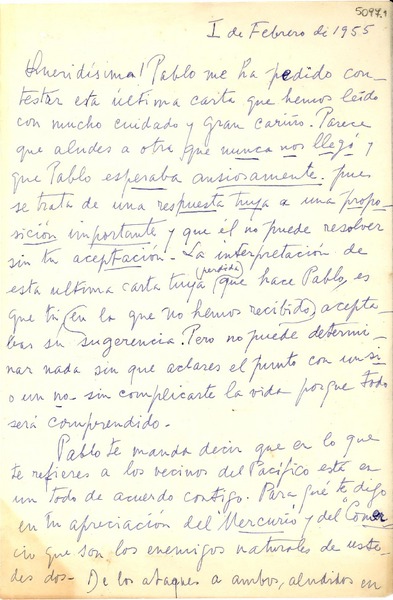 5097.1
I de Febrero de 1955
Queridísima! Pablo me ha pedido con-
testar esta última carta que hemos leído
con mucho cuidado y gran cariño. Parece
que aludes a otra que nunca nos llegó y
que Pablo esperaba ansiosamente. pues
se trata de una respuesta tuya a una propo-
sición importante y que él no puede resolver
sin tu aceptación. La interpretación de
esta ultima carta tuya (perdida) que hace Pablo, es
que tú (en la que no hemos recibido) acepta-
bas su sugerencia. Pero no puede determi-
nar nada sin que aclares el punto con un si
o un no. sin complicarte la vida porque todo
será comprendido.
Pablo te manda decir que en lo que
te refieres a los vecinos del Pacífico está en
un todo de acuerdo contigo. Para qué te digo
en tu apreciación del Mercurio y del Comer
cio que son los enemigos naturales de uste-
des dos. De los ataques a ambos, aludidos en